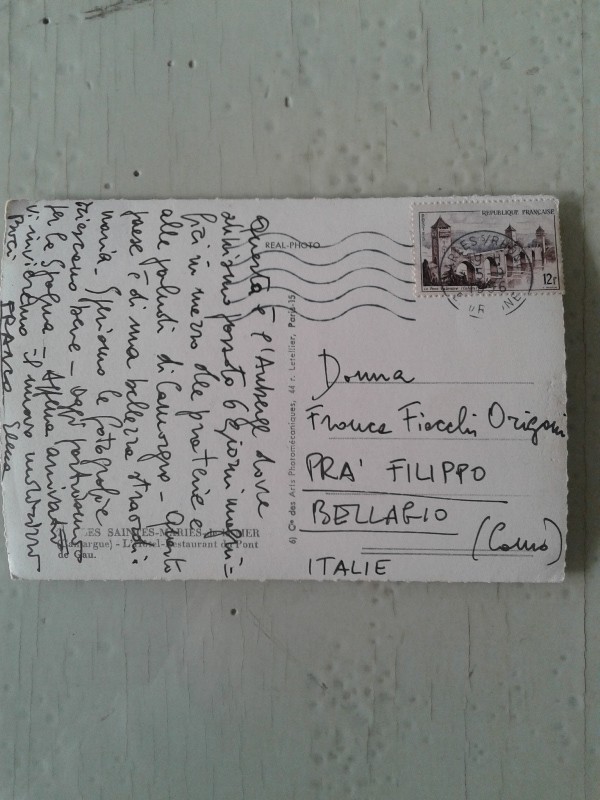 Questa è l'Auberge dove
abbiamo passato 6 giorni
in mezzo alle praterie e
alle paludi di Camargue - Questo
paese è di una bellezza straordi=
naria - Speriamo le fotografie
vengano bene - Oggi partiamo
per la Spagna - Appena arrivati
vi invieremo il nuovo indirizzo
Baci FRANCA Elena
LES SAINTES-MARIES-de-la-MER
(Camargue) - L'Hôtel-Restaurant du Pont
de Gau.
REAL-PHOTO
6) Cie des Arts Photomécaniques, 44 r. Letellier, Paris-15
REPUBLIQUE FRANÇAISE
12F
Donna
Franca Fiocchi Origoni
PRA' FILIPPO
BELLAGIO
(Como)
ITALIE